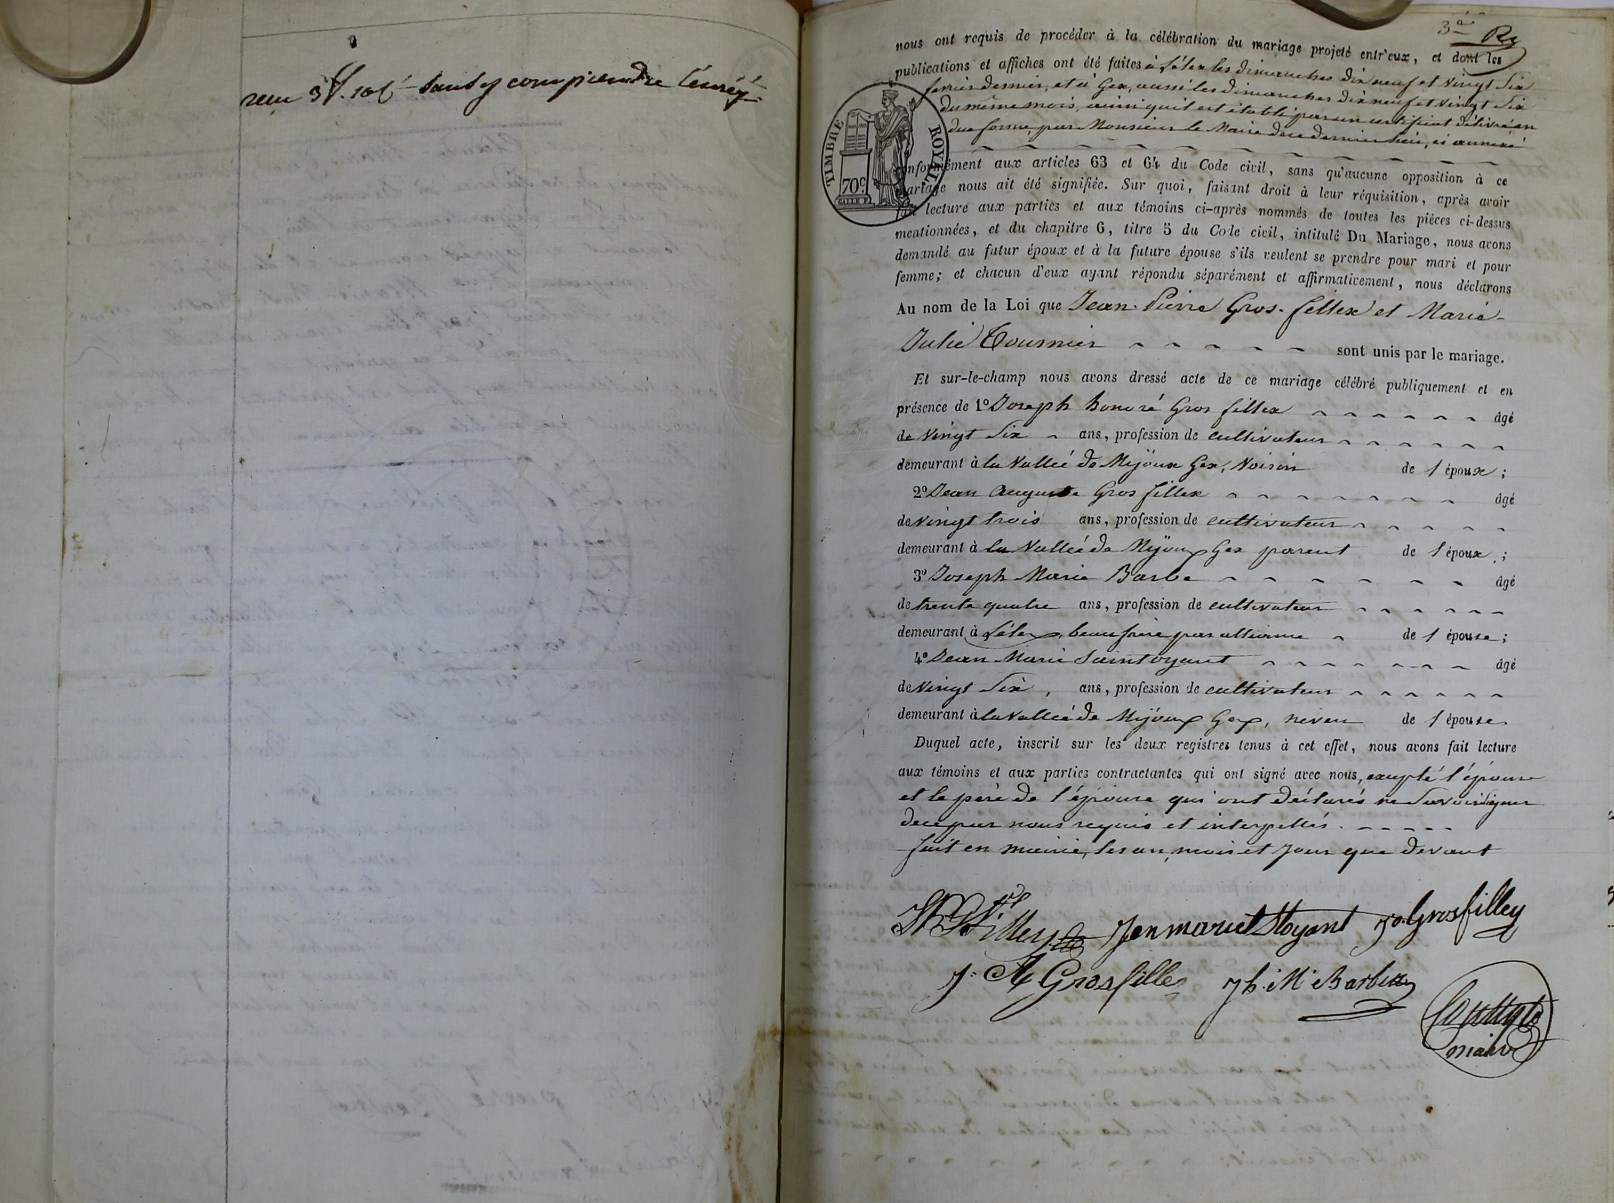 reçu 3 sans y comprendre
3e
nous ont requis de procéder à la célébration du mariage projeté entr'eux, et dont les
publications et affiches ont été faites à Lélex les dimanches dix neuf et Vingt Six
fevrier dernier, et à Gex, aussi les dimanches dix neuf et Vingt Six
du même mois, ainsi qu'il est établi par un certificat délivré en
due forme par Monsieur le Maire de ce dernier lieu, ci annexé
TIMBRE ROYAL
70c
conformément aux articles 63 et 64 du Code civil, sans qu'aucune opposition à ce
mariage nous ait été signifiée. Sur quoi, faisant droit à leur réquisition, après avoir
fait lecture aux parties et aux témoins ci-après nommés de toutes les pièces ci-dessus
mentionnées, et du chapitre 6, titre 5 du Code civil, intitulé Du Mariage, nous avons
demandé au futur époux et à la future épouse s'ils veulent se prendre pour mari et pour
femme; et chacun d'eux ayant répondu séparément et affirmativement, nous déclarons
Au nom de la Loi que Jean-Pierre Gros-fillex et Marie-
Julie Tournier sont unis par le mariage.
Et sur-le-champ nous avons dressé acte de ce mariage célébré publiquement et en
présence de 1º Joseph honoré Gros fillex âgé
de Vingt Six ans, profession de cultivateur
demeurant à la Vallée de Mijoux Gex, Voisin de l'époux;
2º Jean Auguste Gros fillex âgé
de Vingt trois ans, profession de cultivateur
demeurant à la Vallée de Mijoux Gex parent de l'époux;
3º Joseph Marie Barbe âgé
de trente quatre ans, profession de cultivateur
demeurant à Lélex, beau frère par alliance de l'épouse;
4º Jean Marie Saintoyant âgé
de Vingt Six, ans, profession de cultivateur
demeurant à la Vallée de Mijoux Gex, neveu de l'épouse.
Duquel acte, inscrit sur les deux registres tenus à cet effet, nous avons fait lecture
aux témoins et aux parties contractantes qui ont signé avec nous, excepté l'épouse
et le père de l'épouse qui ont déclarés ne Savoir signer
de ce par nous requis et interpellés.
fait en mairie, les an, mois et jour que devant
Jen marie Stoyant Jo. Grosfilley
J. A Grosfillex Jh. M. Barbe
maire